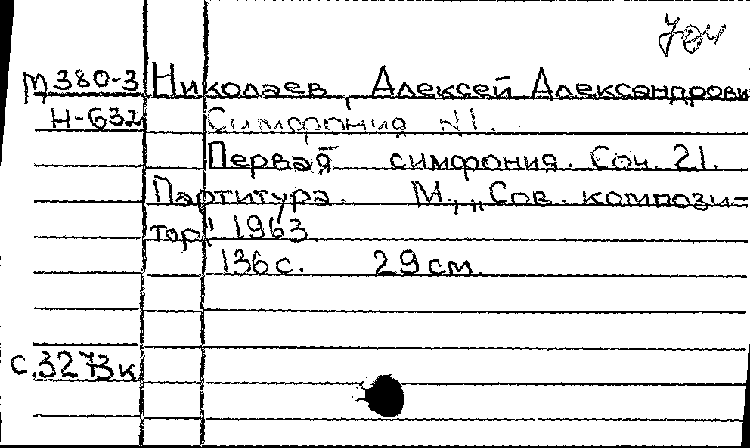 704
М380-3 Николаев, Алексей Александрови
Н-632 Симфония N1.
Первая симфония. Соч. 21.
Партитура. М., „Сов. компози-
тор" 1963
136 с. 29 см.
С.3273к